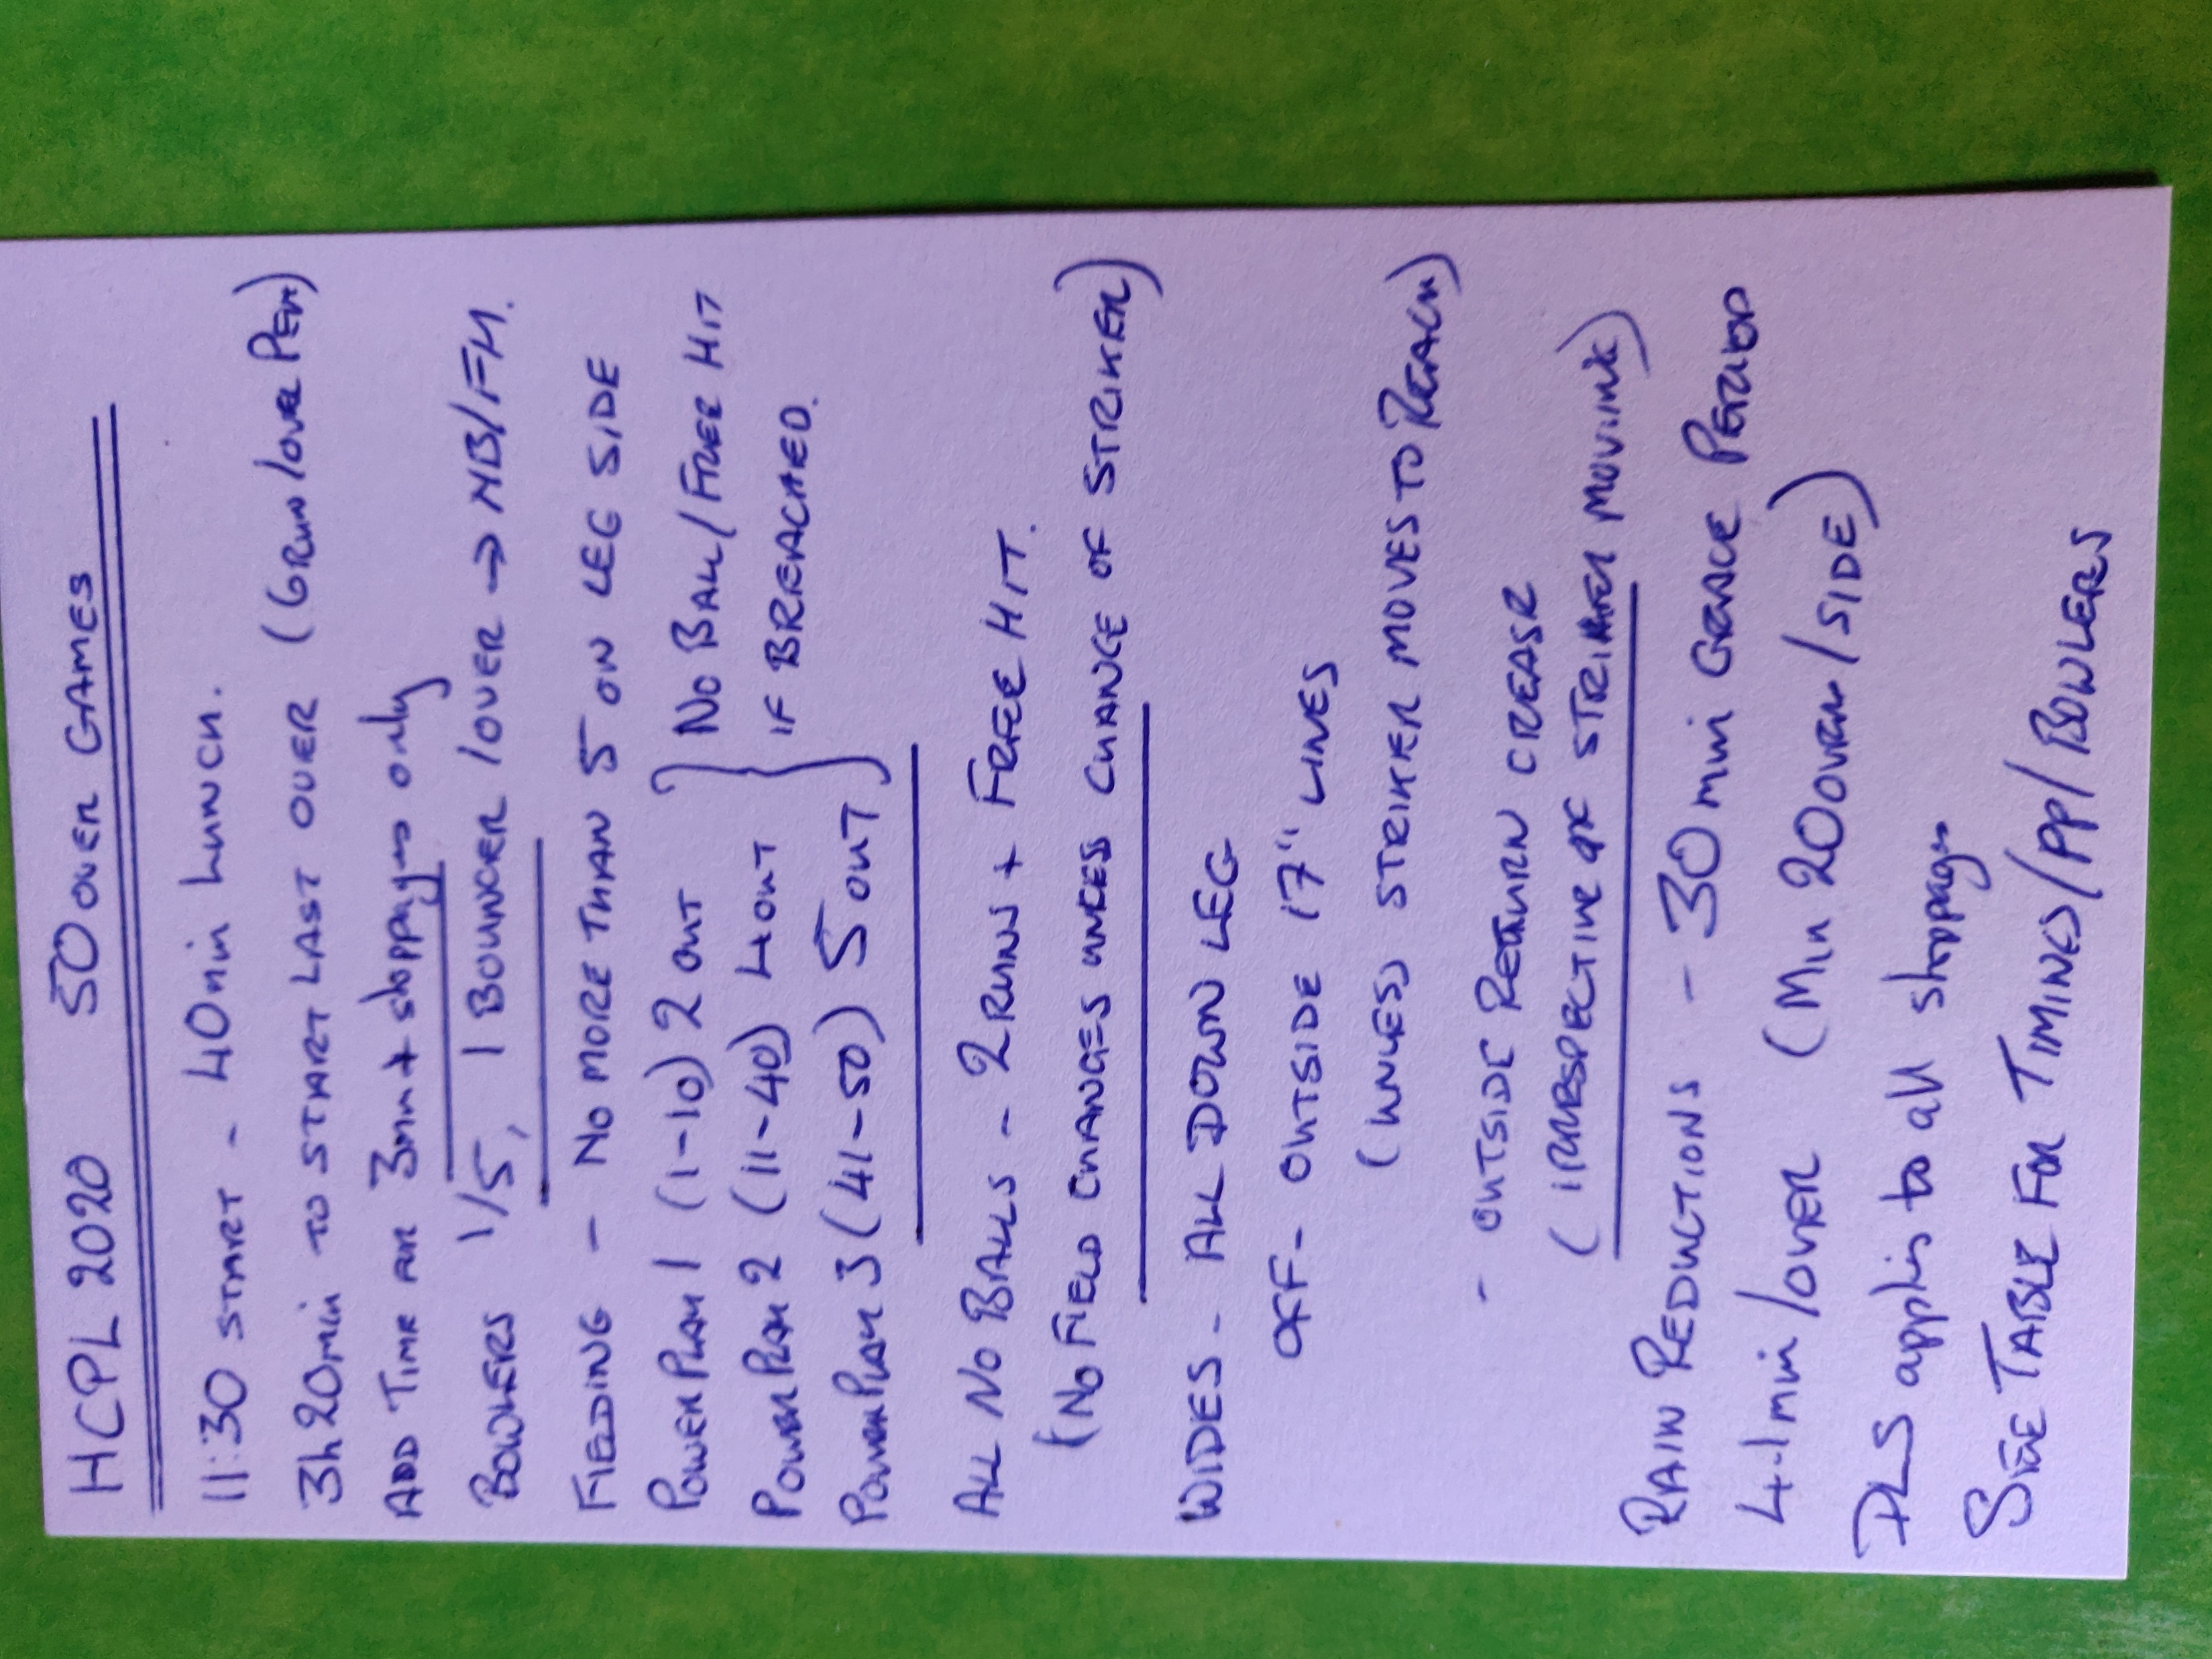 HCPL 2020 50 over GAMES
11:30 START - 40min LUNCH.
3h 20min TO START LAST OVER (6 Run/over Pen)
ADD TIME for 3min + stoppages only
BOWLERS 1/5, 1 BOUNCER/OVER → NB/FH.
FIELDING - NO MORE THAN 5 ON LEG SIDE
POWERPLAY 1 (1-10) 2 out } NO BALL/FREE HIT
POWERPLAY 2 (11-40) 4 out } IF BREACHED.
POWERPLAY 3 (41-50) 5 out
ALL NO BALLS - 2 RUNS + FREE HIT.
(NO FIELD CHANGES UNLESS CHANGE OF STRIKER)
WIDES - ALL DOWN LEG
OFF - OUTSIDE 17" LINES
(UNLESS STRIKER MOVES TO REACH)
- OUTSIDE RETURN CREASE
(IRRESPECTIVE OF STRIKER MOVING)
RAIN REDUCTIONS - 30 min GRACE PERIOD
4.1min/OVER (Min 20 over/SIDE)
DLS applies to all stoppages
SEE TABLE FOR TIMINGS/PP/BOWLERS